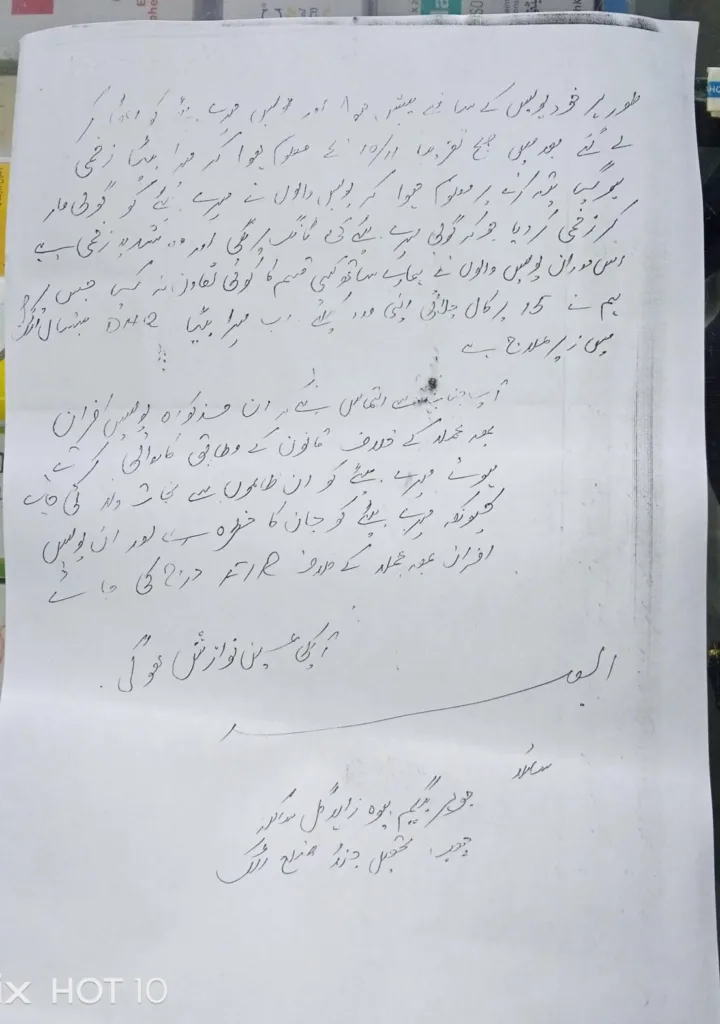 طور پر خود پولیس کے سامنے پیش ہوا اور پولیس میرے بیٹے کو اٹھا کر
لے گئے بعد میں صبح تقریبا 10/11 بجے معلوم ہوا کہ میرا بیٹا زخمی
ہوگیا پتہ کرنے پر معلوم ہوا کہ پولیس والوں نے میرے بیٹے کو گولی مار
کر زخمی کر دیا جوکہ گولی میرے بیٹے کی ٹانگ پر لگی اور وہ شدید زخمی ہے
اس دوران پولیس والوں نے ہمارے ساتھ کسی قسم کا کوئی تعاون نہ کیا جس پر
ہم نے 15 پر کال چلائی اپنی مدد کیلئے اب میرا بیٹا DHQ ہسپتال اٹک
میں زیر علاج ہے
آپ جناب سے التماس ہے کہ ان مذکورہ پولیس افسران
بمعہ عملہ کے خلاف قانون کے مطابق کاروائی کرتے
ہوئے میرے بیٹے کو ان ظالموں سے نجات دلائی جائے
کیونکہ میرے بیٹے کو جان کا خطرہ ہے اور ان پولیس
افسران بمعہ عملہ کے خلاف FIR درج کی جائے
آپکی عین نوازش ہوگی
العبد
سائلہ
بیگم بیوہ گل
تحصیل جنڈ ضلع اٹک
HOT 10